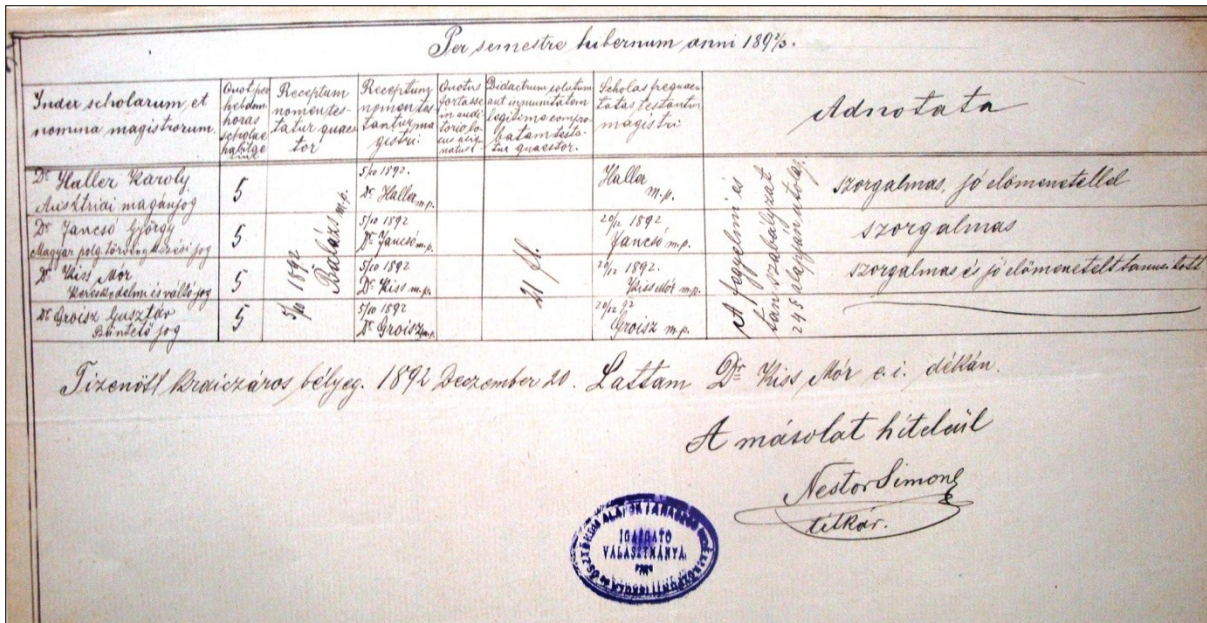 Per semestre hibernum anni 1892/3.
Index scholarum et
nomina magistrorum.
Quot per
hebdom.
horas
scholae
habitae
sint
Receptum
nomen tes-
tatur quaes-
tor
Receptum
nomen tes-
tantur ma-
gistri.
Quotus
fortasse
in audi-
torio lo-
cus assig-
natus
Didactrum solutum
aut immunitatem
legitime compro-
batam testa-
tur quaestor.
Scholas frequen-
tatas testantur
magistri
Adnotata
Dr Haller Károly.
Ausztriai magánjog
5
5/10 1892.
Dr Haller m.p.
Haller
m.p.
szorgalmas, jó elömenetellel
Dr Jancsó György
Magyar polg. törvénykezési jog
5
5/10 1892
Dr Jancsó m.p.
20/12 1892
Jancsó m.p.
szorgalmas
Dr Kiss Mór
Kereskedelmi és váltó jog
5
5/10 1892
Dr Kiss m.p.
20/12 1892.
Kiss Mór m.p.
szorgalmas és jó elömenetelt tanusitott
Dr Groisz Gusztáv
Büntető jog
5
5/10 1892
Dr Groisz m.p.
20/12 92
Groisz m.p.
5/10 1892
Balázs m.p.
21 fl.
A fegyelmi és
tan szabályzat
24 § alapján
Tizenött krajczáros bélyeg. 1892 Deczember 20. Láttam Dr Kiss Mór e. i. dékán.
A másolat hiteléül
Nestor Simon
titkár.
IGAZGATÓ
VÁLASZTMÁNYA